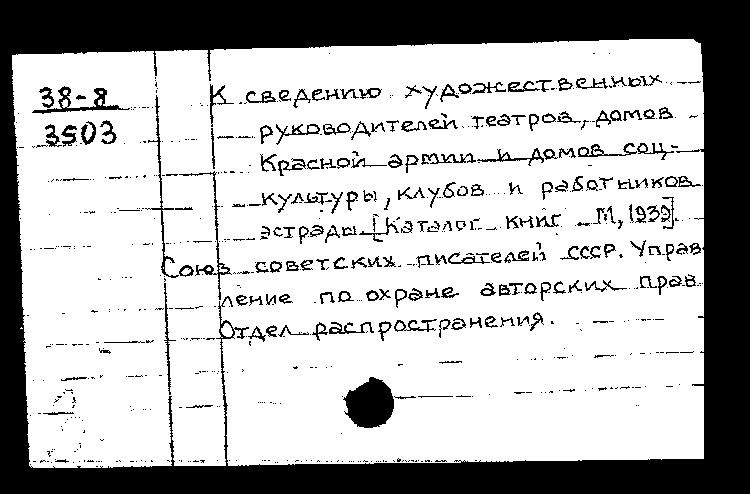 38-8
3503
К сведению художественных
руководителей театров, домов
Красной армии и домов соц-
культуры, клубов и работников
эстрады. [Каталог книг М, 1939].
Союз советских писателей СССР. Управ
ление по охране авторских прав
Отдел распространения.